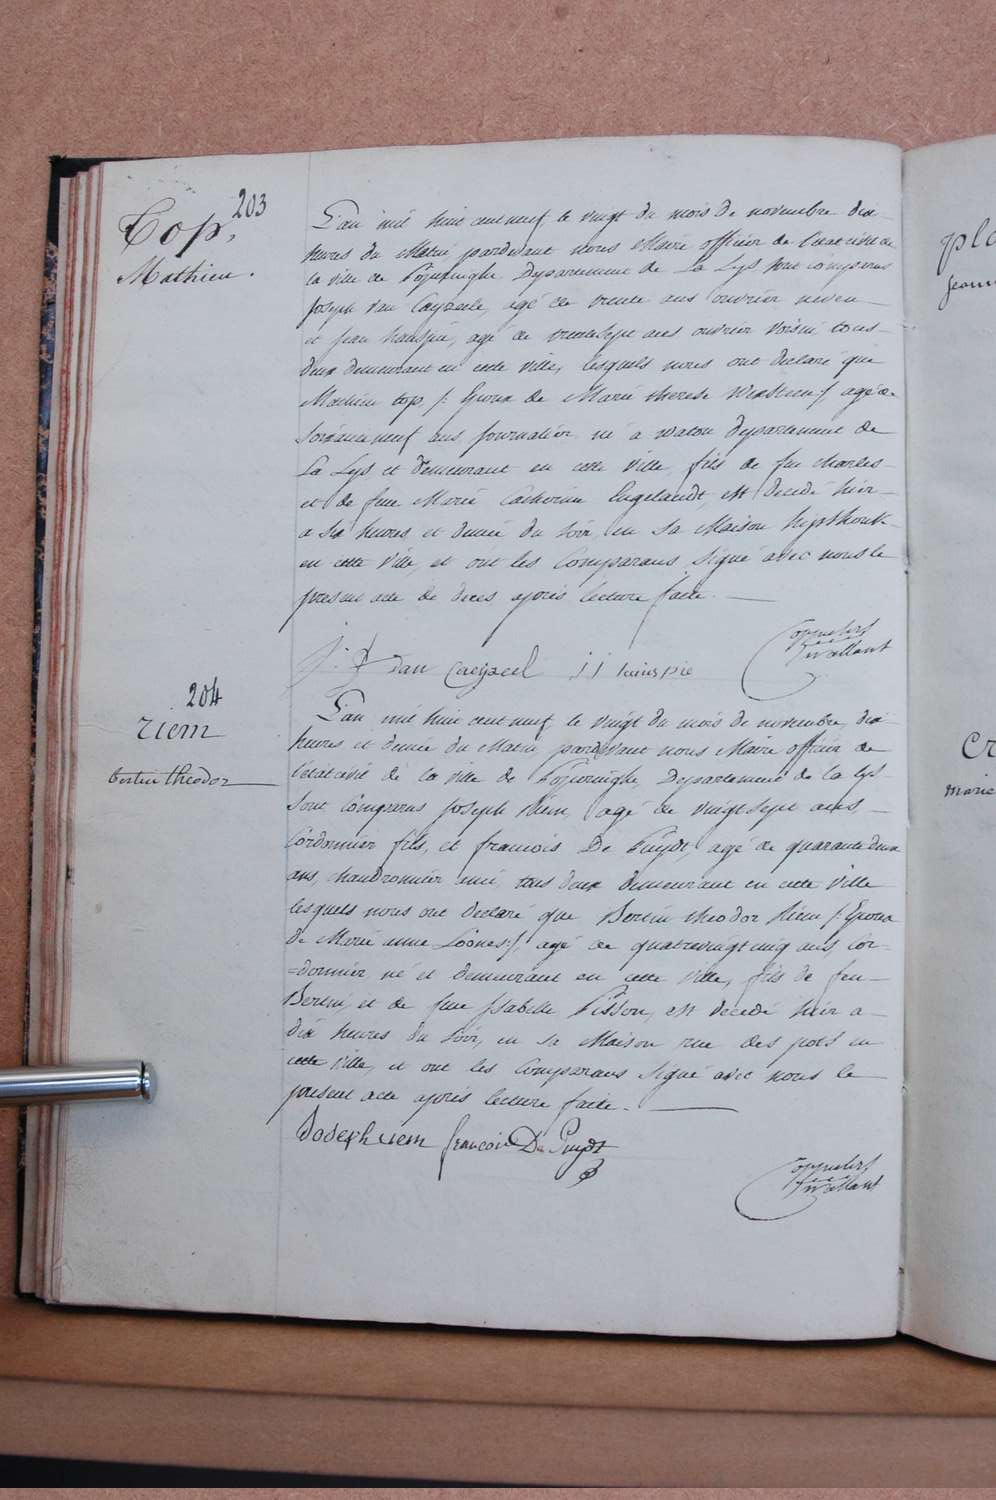 203
Top,
Mathieu.
L'an mil huit cent neuf, le vingt du mois de novembre dix
heures du Matin pardevant nous Maire officier de l'état civil de
la ville de Poperinghe Departement de La Lys sont comparus
Joseph Van Cayzeele, agé de trente ans ouvrier neveu
et Jean hauspie, agé de trentesept ans ouvrier voisin tous
deux demeurant en cette ville, lesquels nous ont declaré que
Mathieu top /: Epoux de Marie therese :/ agé de
Soixanteneuf ans journalier né a watou departement de
La Lys et demeurant en cette ville, fils de feu charles
et de feue Marie Catherine Engelandt, est decedé hier
a six heures et demie du soir, en sa Maison
en cette ville, et ont les Comparans signé avec nous le
present acte de deces après lecture faite.
Van Cayzeel j j hauspie
204
Riem
bertin theodor
L'an mil huit cent neuf le vingt du mois de novembre, dix
heures et demie du Matin, pardevant nous Maire officier de
l'état civil de la ville de Poperinghe, Departement de la Lys
sont comparus Joseph Riem, agé de vingt sept ans,
Cordonnier fils, et francois De Puydt, agé de quarante deux
ans, chaudronnier ami, tous deux demeurant en cette ville
lesquels nous ont declaré que Bertin theodor Riem /: Epoux
de Marie anne Loones :/, agé de quatrevingt cinq ans, Cor-
=donnier, né et demeurant en cette ville, fils de feu
Bertin, et de feue Isabelle Pisson, est decedé hier a
dix heures du soir, en sa Maison rue des pots en
cette ville, et ont les Comparans signé avec nous le
present acte après lecture faite.
Joseph riem francois De Puydt